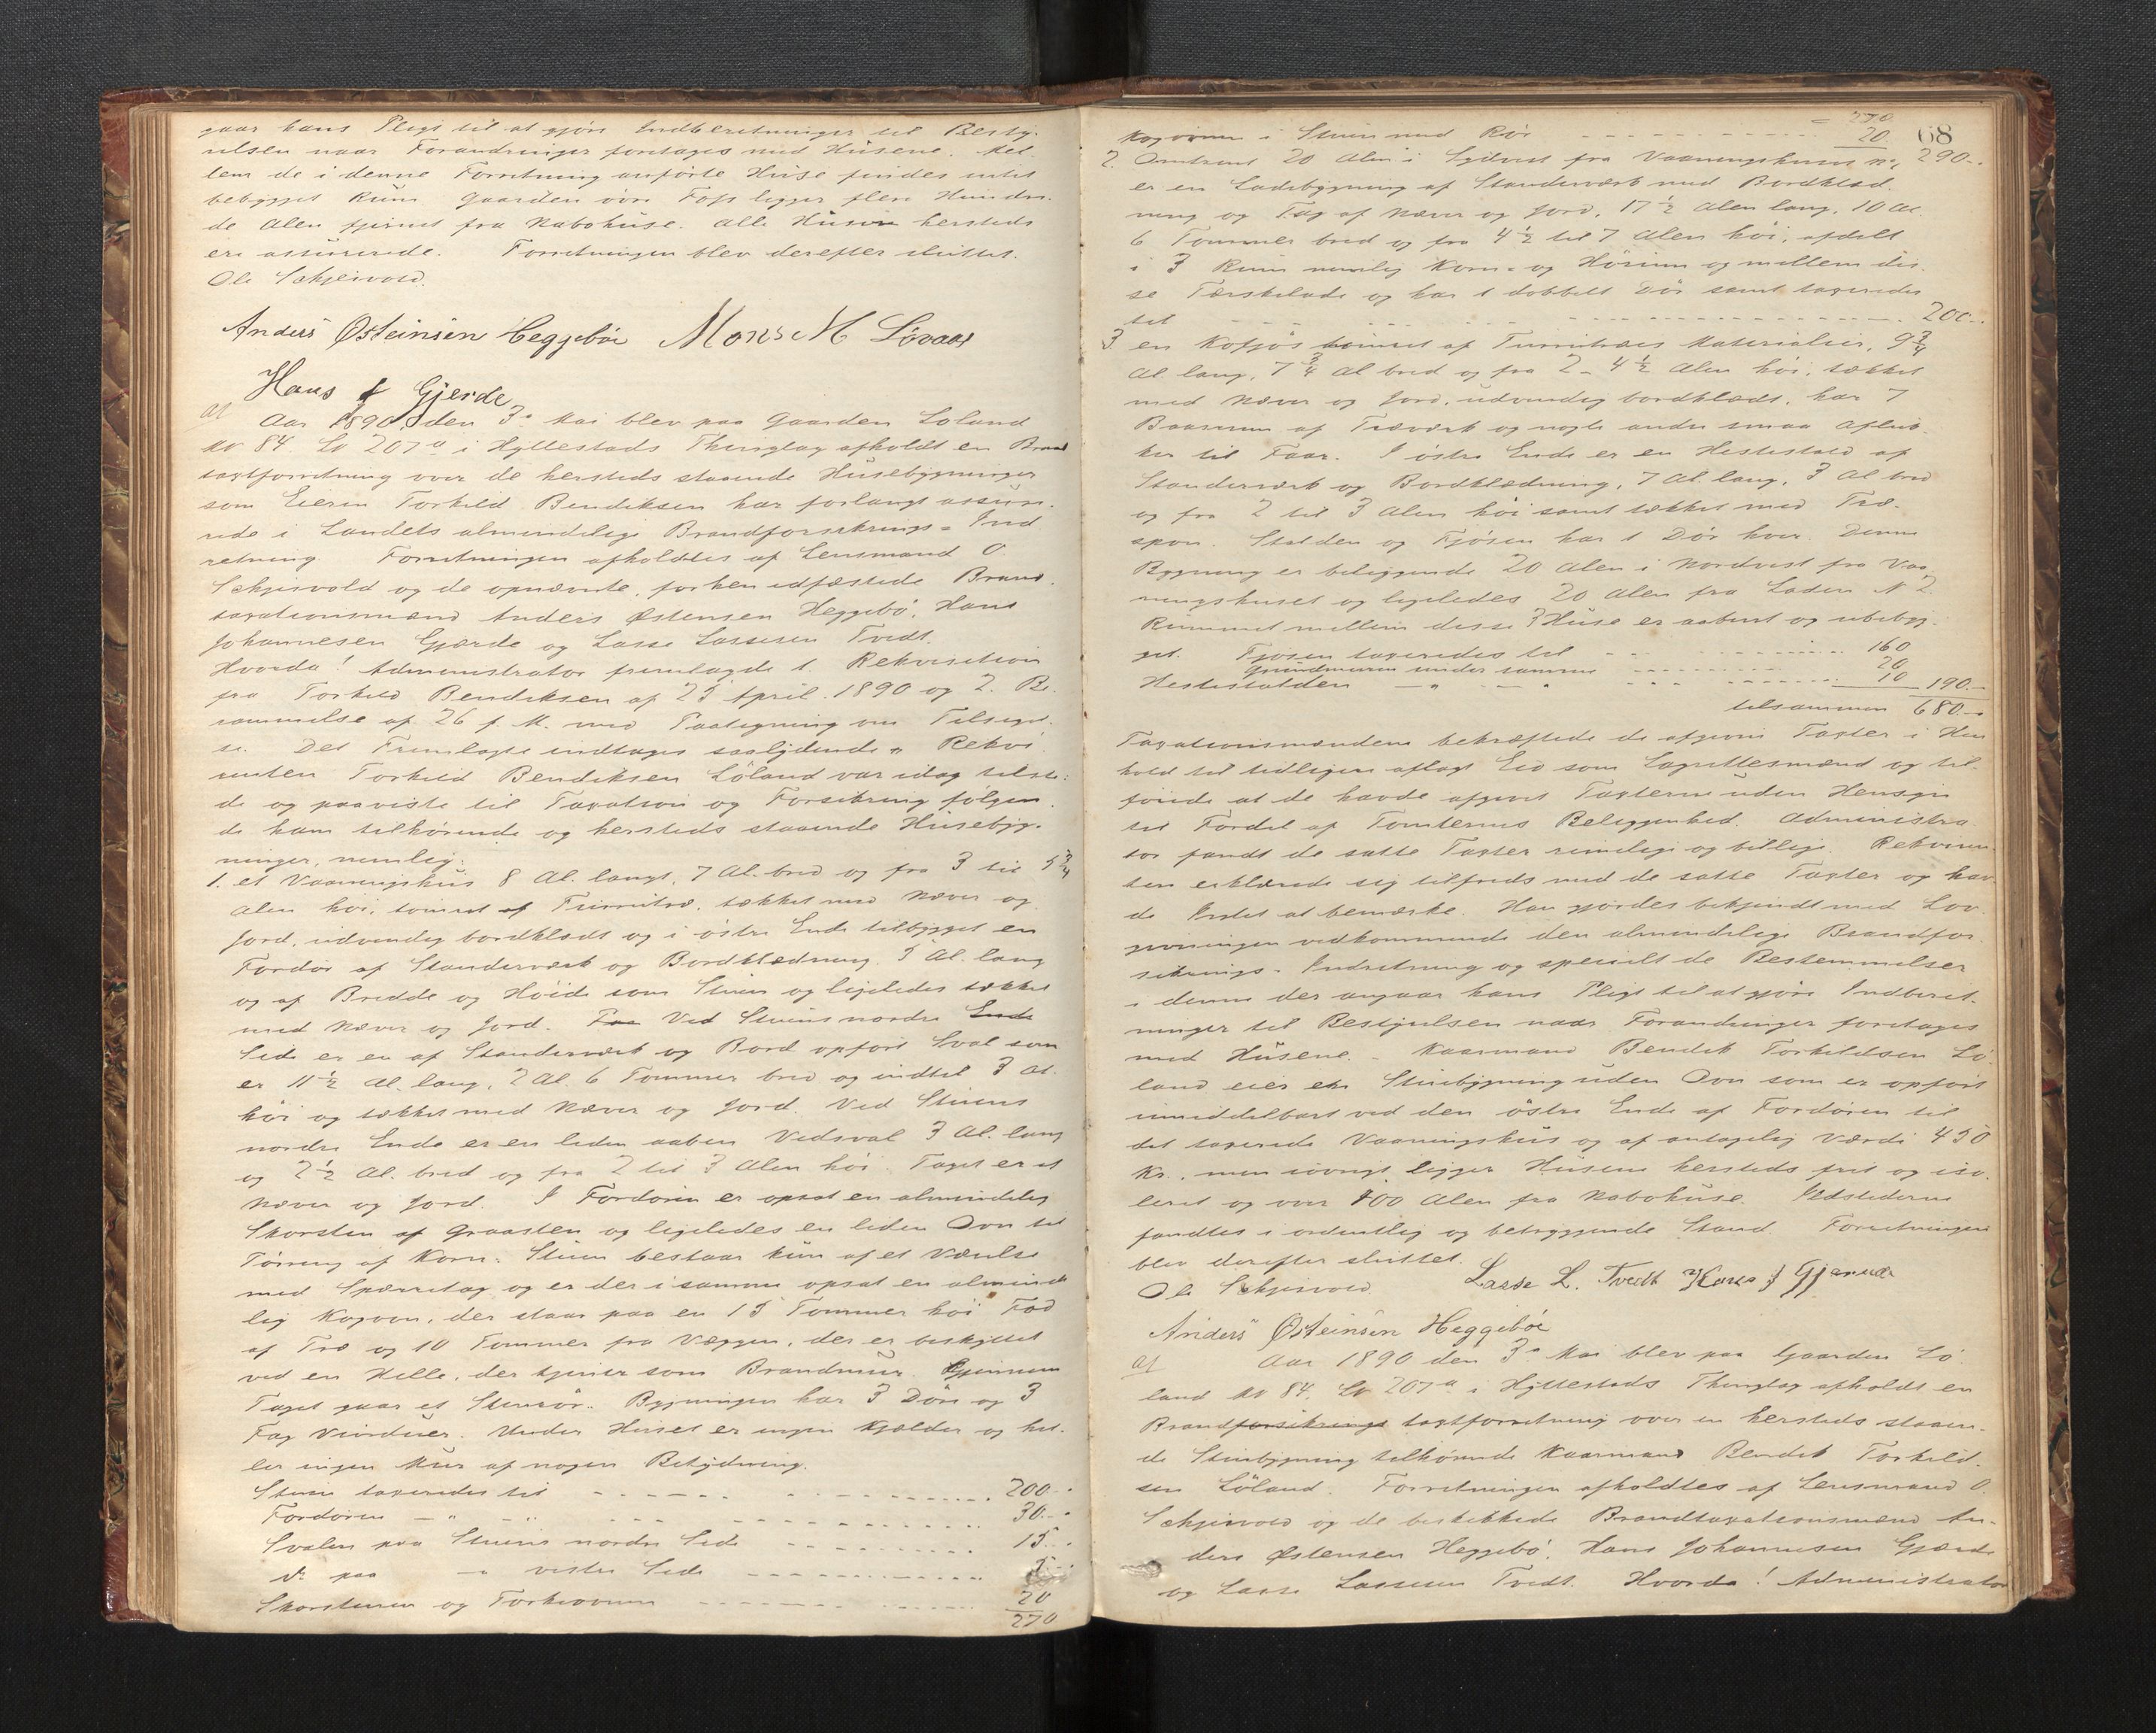 gaar hans Pligt til at gjøre Indberetninger til Besty-
relsen naar Forandringer foretages med Husene. Mel-
lem de i denne Forretning anførte Huse findes intet
bebygget Rum. Gaarden øvre Foss ligger flere Hundre-
de Alen fjernet fra Nabohuse. Alle Husene hersteds
ere assurerede. Forretningen blev derefter sluttet.
Ole Schjeivold.
Anders Østeinsen Heggebøe Mons M Løvaas
Hans J Gjerde
At
Aar 1890, den 3. Mai blev paa Gaarden Løland
No 84. Lb 207a i Hyllestads Thinglag afholdt en Brand
taxtforretning over de hersteds staaende Husebygninger
som Eieren Torkild Bendiksen har forlangt assure-
rede i Landets almindelige Brandforsikrings-Ind
retning. Forretningen afholdtes af Lensmand O
Schjeivold og de opnævnte, forhen edfæstede Brand-
taxationsmænd Anders Østensen Heggebø, Hans
Johannesen Gjærde og Lasse Lassesen Tvedt.
Hvorda! Administrator fremlagde 1. Rekvisition
fra Torkild Bendiksen af 23 April 1890 og 2. Be-
rammelse af 26 f. M. med Paategning om Tilsigel-
se. Det Fremlagte indtages saalydende " Rekvi-
renten Torkild Bendiksen Løland var idag tilste-
de og paaviste til Taxation og Forsikring følgen-
de ham tilhørende og hersteds staaende Husebyg-
ninger, nemlig:
1. et Vaaningshus 8 Al. langt, 7 Al. bred og fra 3 til 5¾
Alen høi, tømret af Furrutræ, tækket med Næver og
Jord, udvendig bordklædt og i østre Ende tilbygget en
Fordør af Standerværk og Bordklædning, 3 Al. lang
og af Bredde og Høide som Stuen og ligeledes tækket
med Næver og Jord. Fra Ved Stuens nordre Ende
Side er en af Standerværk og Bord opført Sval som
er 11½ Al. lang, 2 Al. 6 Tommer bred og indtil 3 Al.
høi og tækket med Næver og Jord. Ved Stuens
nordre Ende er en liden aaben Vedsval 3 Al. lang
og 2½ Al. bred og fra 2 til 3 Alen høi. Taget er af
Næver og Jord. I Fordøren er opsat en almindelig
Skorsten af Graasten og ligeledes en liden Ovn til
Tørring af Korn. Stuen bestaar kun af et Værelse
med Spærretag og er der i samme opsat en alminde
lig Kogovn, der staar paa en 15 Tommer høi Fod
af Træ og 10 Tommer fra Væggen, der er beskyttet
ved en Helle, der tjener som Brandmur. Gjennem
Taget gaar et Stenrør. Bygningen har 3 Døre og 3
Fag Vinduer. Under Huset er ingen Kjælder og hel-
ler ingen Mur af nogen Betydning.
Stuen taxeredes til 200..
Fordøren — " — 30..
Svalen paa Stuens nordre Side 15..
do paa — " vestre Side 5..
Skorstenen og Tørkeovnen 20
270
= 270
Kogovnen i Stuen med Rør 20 68
290..
2. Omtrent 20 Alen i Sydvest fra Vaaningshuset No 1
er en Ladebygning af Standerværk med Bordklæd-
ning og Tag af Næver og Jord, 17½ Alen lang, 10 Al.
6 Tommer bred og fra 4½ til 7 Alen høi, afdelt
i 3 Rum nemlig Korn- og Hørum og mellem dis-
se Tærskelade og har 1 dobbelt Dør samt taxeredes
til 200..
3. en Kofjøs tømret af Furrutræes Materialier, 9¾
Al. lang, 7¾ Al bred og fra 2 - 4½ Alen høi, tækket
med Næver og Jord, udvendig bordklædt, har 7
Baaserum af Træværk og nogle andre smaa Afluk-
ker til Faar. I østre Ende er en Hestestald af
Standerværk og Bordklædning, 7 Al. lang, 3 Al bred
og fra 2 til 3 Alen høi samt tækket med Træ-
spon. Stalden og Fjøsen har 1 Dør hver. Denne
Bygning er beliggende 20 Alen i Nordvest fra Vaa-
ningshuset og ligeledes 20 Alen fra Laden N 2.
Rummet mellem disse 3 Huse er aabent og ubebyg-
get. Fjøsen taxeredes til 160
Grundmuren under samme 20
Hestestalden — " — " 10 190..
tilsammen 680..
Taxationsmændene bekræftede de afgivne Taxter i Hen
hold til tidligere aflagt Eid som Lagrettesmænd og til-
føiede at de havde afgivet Taxterne uden Hensyn
til Fordel af Tomternes Beliggenhed. Administra
tor fandt de satte Taxter rimelige og billige. Rekviren-
ten erklærede sig tilfreds med de satte Taxter og hav-
de Intet at bemærke. Han gjordes bekjendt med Lov
givningen vedkommende den almindelige Brandfor-
sikrings-Indretning og specielt de Bestemmelser
i denne der angaar hans Pligt til at gjøre Indberet-
ninger til Bestyrelsen naar Forandringer foretages
med Husene. - Kaarmand Bendik Torkildsen Lø
land eier en Stuebygning uden Ovn som er opført
umiddelbart ved den østre Ende af Fordøren til
det taxerede Vaaningshus og af antagelig Værdi 450
Kr., men iøvrigt ligger Husene hersteds frit og iso-
leret og over 100 Alen fra Nabohuse. Ildstederne
fandtes i ordentlig og betryggende Stand. Forretningen
blev derefter sluttet.
Ole Schjeivold. Lasse L. Tvedt Hans J Gjerde
Anders Østeinsen Heggebøe
At
Aar 1890 den 3. Mai blev paa Gaarden Lø
land No 84. Lb 207a i Hyllestads Thinglag afholdt en
Brandforsikrings taxtforretning over en hersteds staaen-
de Stuebygning tilhørende Kaarmand Bendik Torkild-
sen Løland. Forretningen afholdtes af Lensmand O.
Schjeivold og de beskikkede Brandtaxationsmænd An-
ders Østensen Heggebø, Hans Johannesen Gjærde
og Lasse Lassesen Tvedt. Hvorda! Administrator